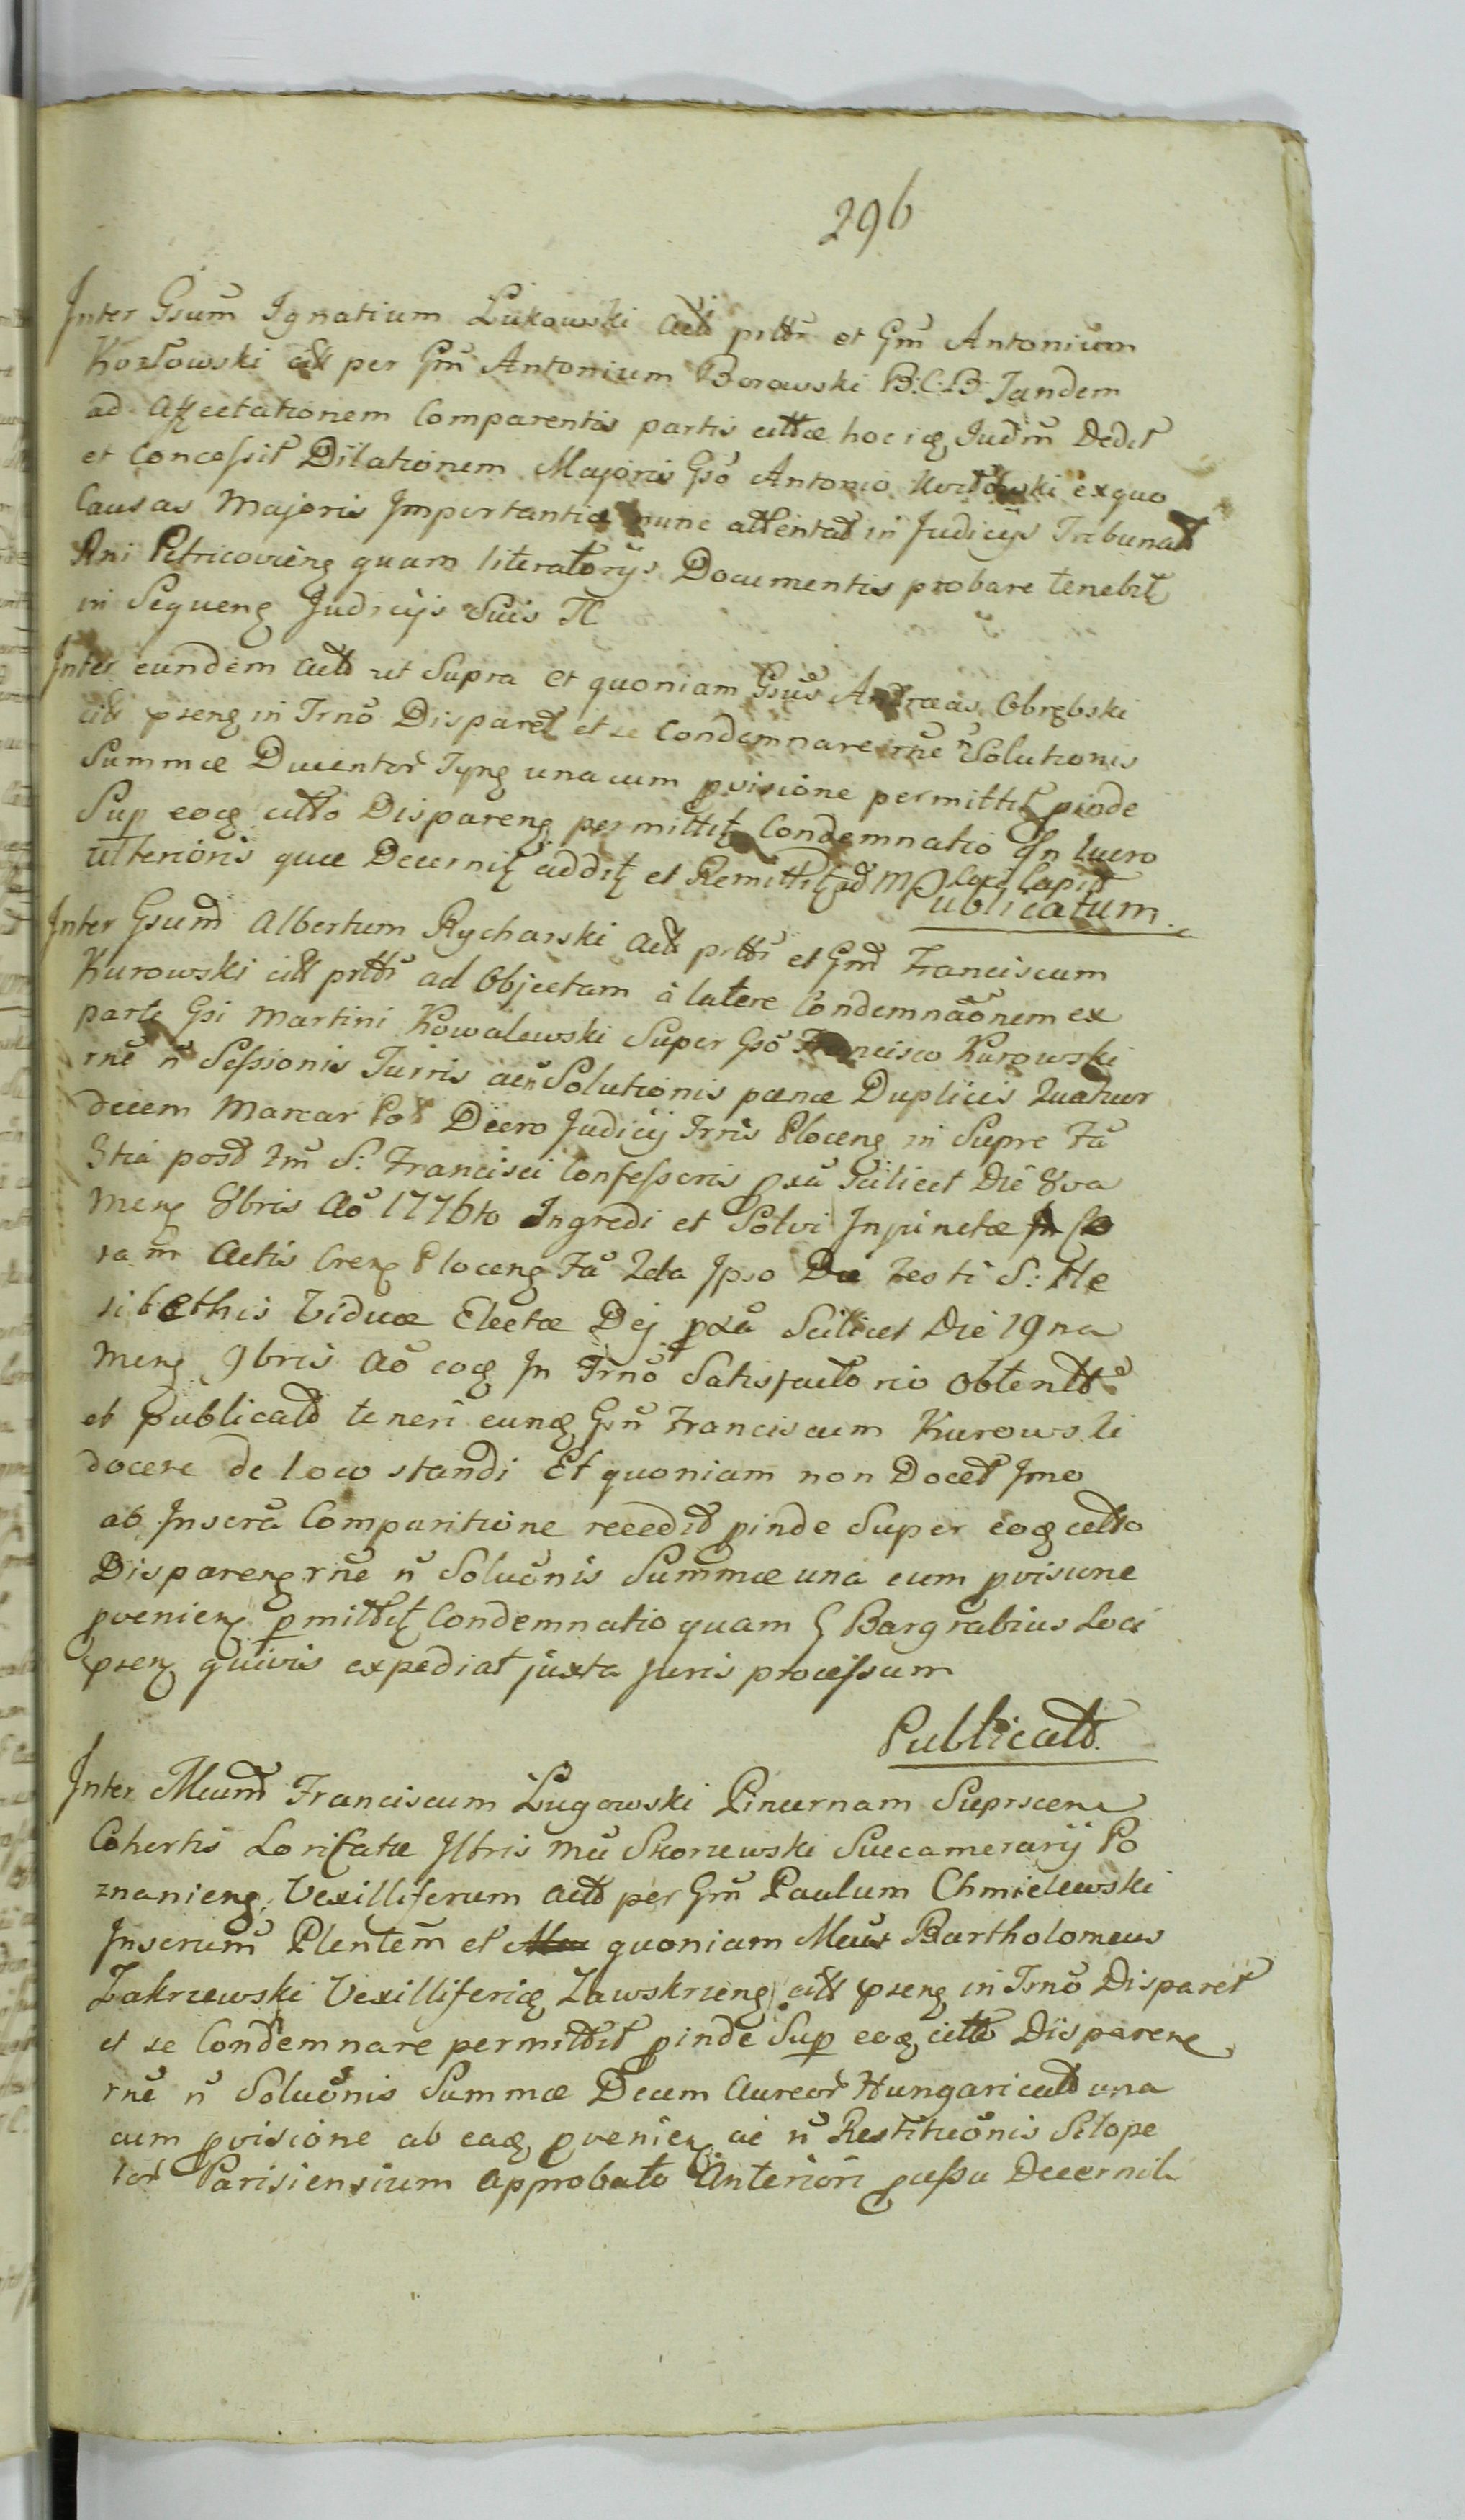 296
Inter Gsum Ignatium Łukowski Actt prttr et Gm Antonium
Kozłowski citt per Gm Antonium Borowski B:C:B: Tandem
ad Affectationem Comparentis partis cittae hoc idq Judm Dedit
et Concessit Dilationem Majoris Gso Antonio exquo
Causas Majoris Importantiae nunc attentat in Judicijs Tribunat
Rni Petricovieng quam literatorijs Documentis probare tenebit
in Sequeng Judicijs Suis
Inter eundem Actt ut Supra et quoniam Gsus Andraeas Obrębski
citt pseng in Trno Disparet et se Condemnare rne n Solutionis
Summae Ducentor Tyng una cum pvisione permittit pinde
Sup eoq citto Dispareng permittit Condemnatio In lucro
ulterioris quae Decernit addit et Remittit ad Loci Capit
Publicatum
Inter Gsum Albertum Rycharski Actt prttr et Gm Franciscum
Kurowski citt prttr ad Objectam à latere Condemnaonem ex
parte Gsi Martini Kowalewski Super Gso Francisco Kurowski
rne n Sessionis Turris acn Solutionis paenae Duplicis Quatuor
decem Marcar Pol Decro Judicij Trris Ploceng in Supre Fa
3tia post Fm S: Francisci Confessoris pxa Scilicet Die 8va
Meng 8bris Ao 1776to Ingredi et Solvi Injunctae
ra in Actis Creng Ploceng Fa 2da Ipso Die Festi S: He
sibethis Viduae Electae Dej pxa Scilicet Die 19na
Meng 9bris Ao eoq In Trno Satisfactorio Obtentt
et Publicatt teneri eunq Gsn Franciscum Kurowski
docere de loco standi Et quoniam non Docet Imo
ab Insera Comparitione recedit pinde Super eoq citto
Dispareng rne n Soluonis Summae una cum pvisione
pvenieng pmittit Condemnatio quam G Bargrabius Loci
pseng quivis expediat juxta Juris processum
Publicatt.
Inter Mcum Franciscum Ługowski Pincernam Suprscene
Cohortis Loricatae Iltris Mci Skorzewski Succamerarij Po
znanieng Vexilliferum Actt per Gm Paulum Chmielewski
Inserum Plentem et quoniam Mcus Bartholomeus
Zakrzewski Vexilliferiq Zawskrzeng citt pseng in Trno Disparet
et se Condemnare permittit pinde Sup eoq citto Disparene
rne n Soluonis Summae Decem Aureor Hungaricatt una
cum pvisione ab eaq pvenieng ac n Restituonis Sclope
tor Parisiensium Approbato Anteriori pcessu Decernit